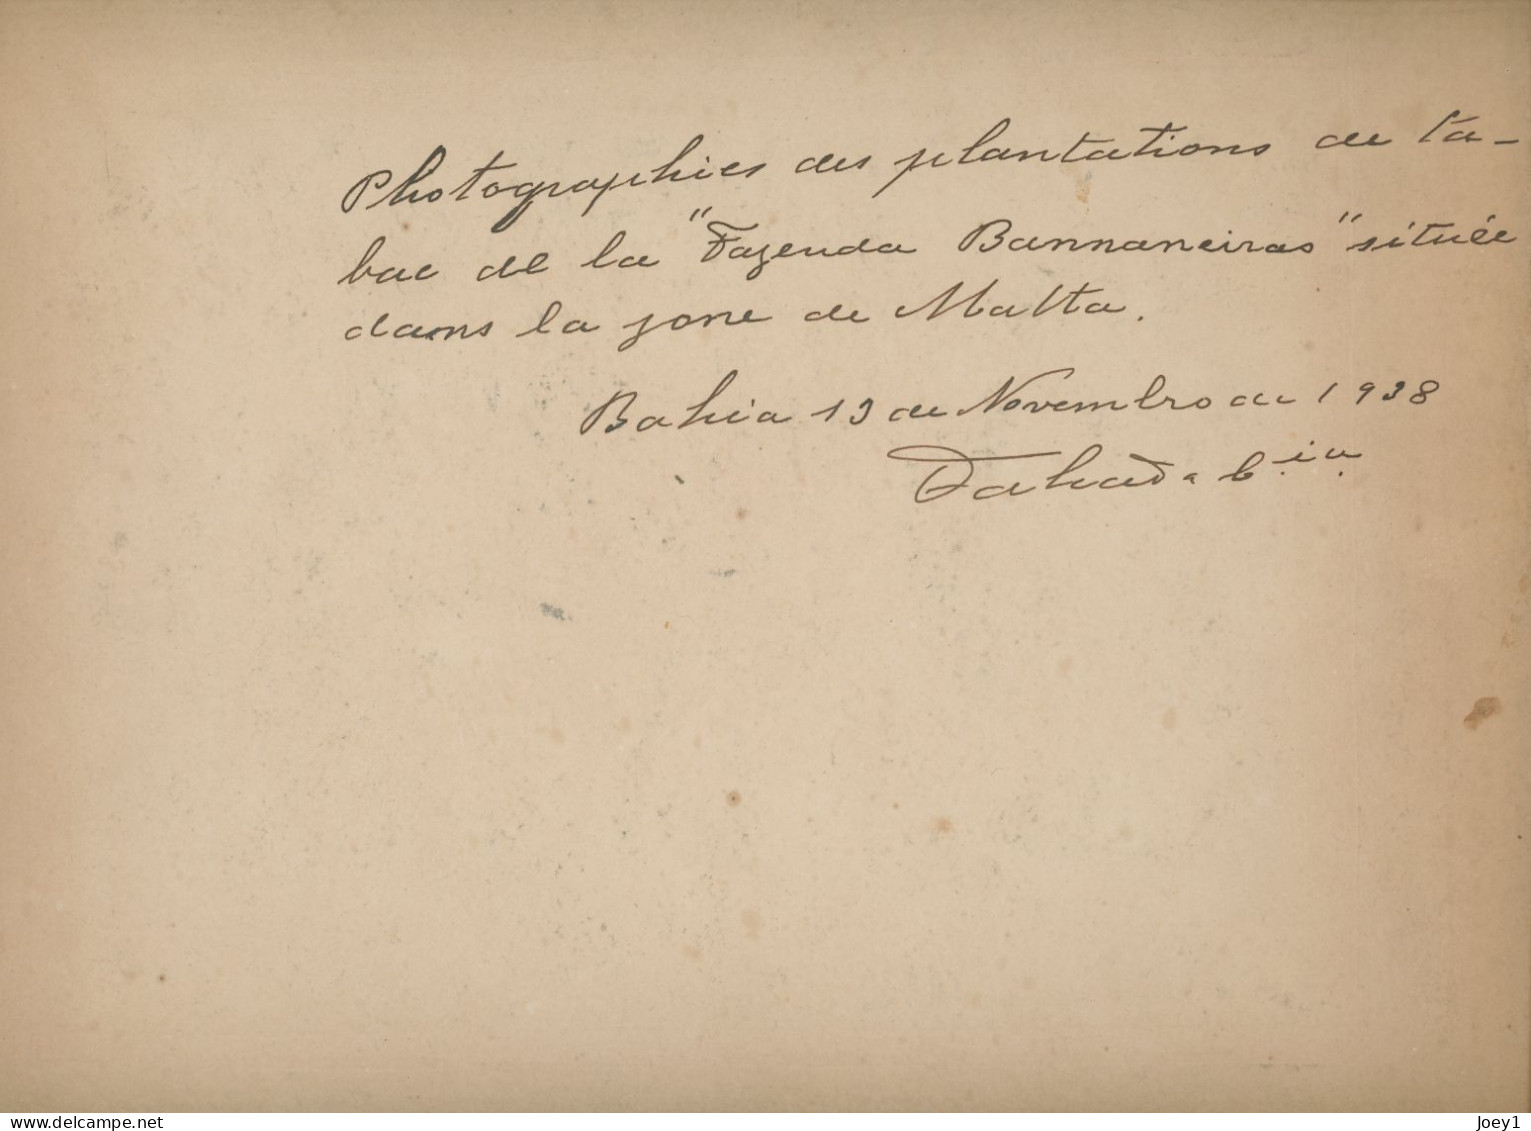 Photographies des plantations de ta-
bac de la "Fazenda Bannaneiras" située
dans la zone de Matta.
Bahia 13 de Novembro de 1938
& Cia.
www.delcampe.net
Joey1